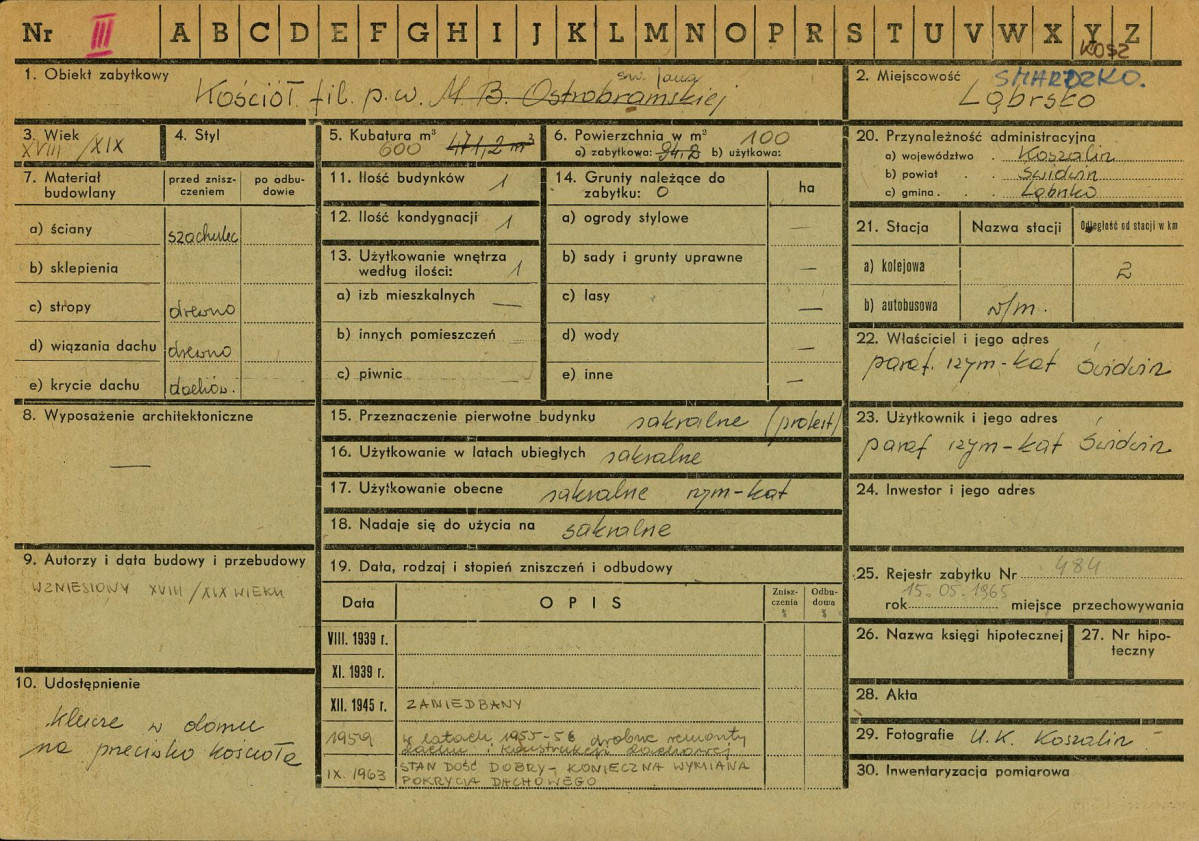 Nr III A B C D E F G H I J K L M N O P R S T U V W X Y Z
KOSZ
1. Obiekt zabytkowy Kościół fil. p.w. M B. Ostrobramskiej
św. Jana
2. Miejscowość SMARDZKO.
Ląbrsko
3. Wiek
XVIII/XIX
4. Styl
5. Kubatura m³
600 471,2 m³
6. Powierzchnia w m² 100
a) zabytkowa: 94,2 b) użytkowa:
7. Materiał budowlany
przed zniszczeniem
po odbudowie
a) ściany szachulec
b) sklepienia
c) stropy drewno
d) wiązania dachu drewno
e) krycie dachu dachów.
8. Wyposażenie architektoniczne
—
9. Autorzy i data budowy i przebudowy
WZNIESIONY XVIII/XIX WIEKU
10. Udostępnienie
klucze w domu
na przeciwko kościoła
11. Ilość budynków 1
12. Ilość kondygnacji 1
13. Użytkowanie wnętrza
według ilości: 1
a) izb mieszkalnych —
b) innych pomieszczeń —
c) piwnic —
14. Grunty należące do
zabytku: 0
ha
a) ogrody stylowe —
b) sady i grunty uprawne —
c) lasy —
d) wody —
e) inne —
15. Przeznaczenie pierwotne budynku sakralne (protest)
16. Użytkowanie w latach ubiegłych sakralne
17. Użytkowanie obecne sakralne rzym-kat
18. Nadaje się do użycia na sakralne
19. Data, rodzaj i stopień zniszczeń i odbudowy
Data OPIS Zniszczenia % Odbudowa %
VIII. 1939 r.
XI. 1939 r.
XII. 1945 r. ZANIEDBANY
1959 w latach 1955-56 drobne remonty
dachu i konstrukcji dachowej
IX. 1963 STAN DOŚĆ DOBRY - KONIECZNA WYMIANA
POKRYCIA DACHOWEGO
20. Przynależność administracyjna
a) województwo . Koszalin
b) powiat . . Świdwin
c) gmina . . Ląbrsko
21. Stacja Nazwa stacji Odległość od stacji w km
a) kolejowa 2
b) autobusowa w/m.
22. Właściciel i jego adres
paraf. rzym-kat Świdwin
23. Użytkownik i jego adres
paraf rzym-kat Świdwin
24. Inwestor i jego adres
25. Rejestr zabytku Nr 484
15. 05. 1965
rok miejsce przechowywania
26. Nazwa księgi hipotecznej
27. Nr hipoteczny
28. Akta
29. Fotografie U.K. Koszalin
30. Inwentaryzacja pomiarowa